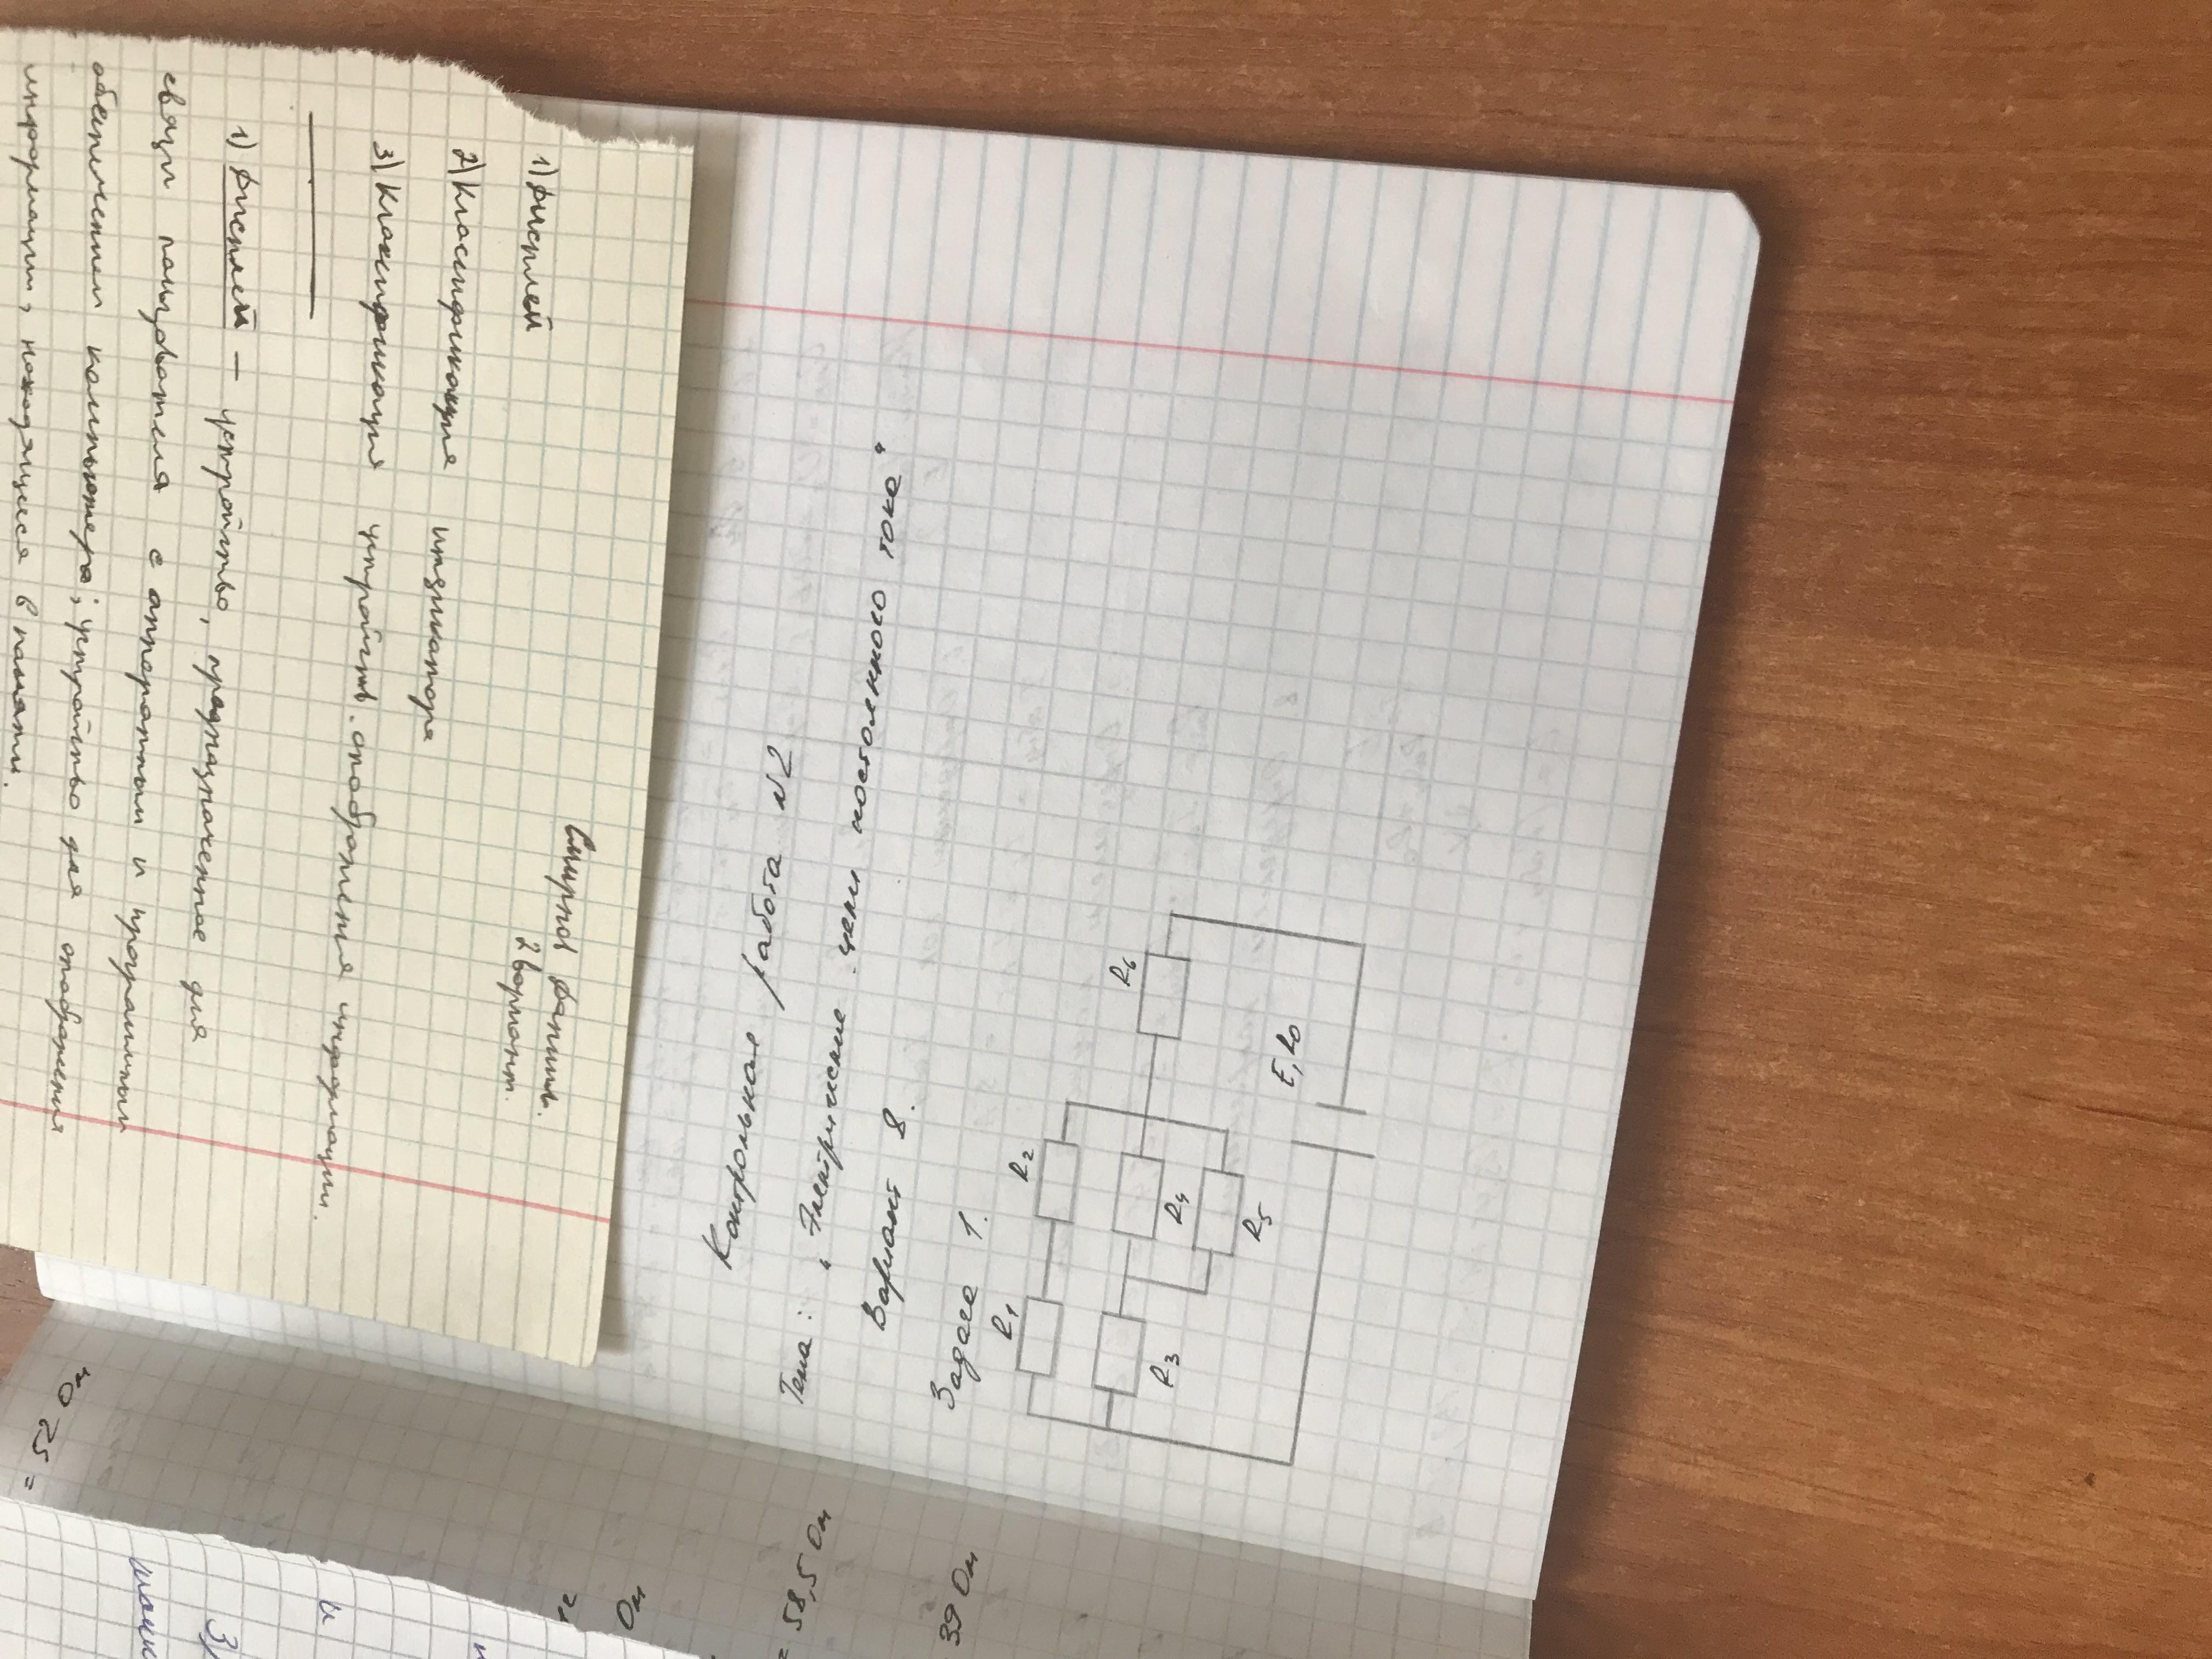 Смирнов Даниил.
2 вариант.
1) Дисплей
2) Класификация индикатора
3) Класификация устройств отображения информации.
1) Дисплей — устройство, предназначенное для
связи пользователя с аппаратным и програмным
обеспечением компьютера; устройство для отображения
информации, находящиеся в памяти.
Контрольная работа №2
Тема: "Электрические цепи постоянного тока"
Вариант 8.
Задача 1.
R1 R2
R3 R4 R6
R5
E, R0
= 52 Ом
Ом
= 58,5 Ом
39 Ом
3)
и